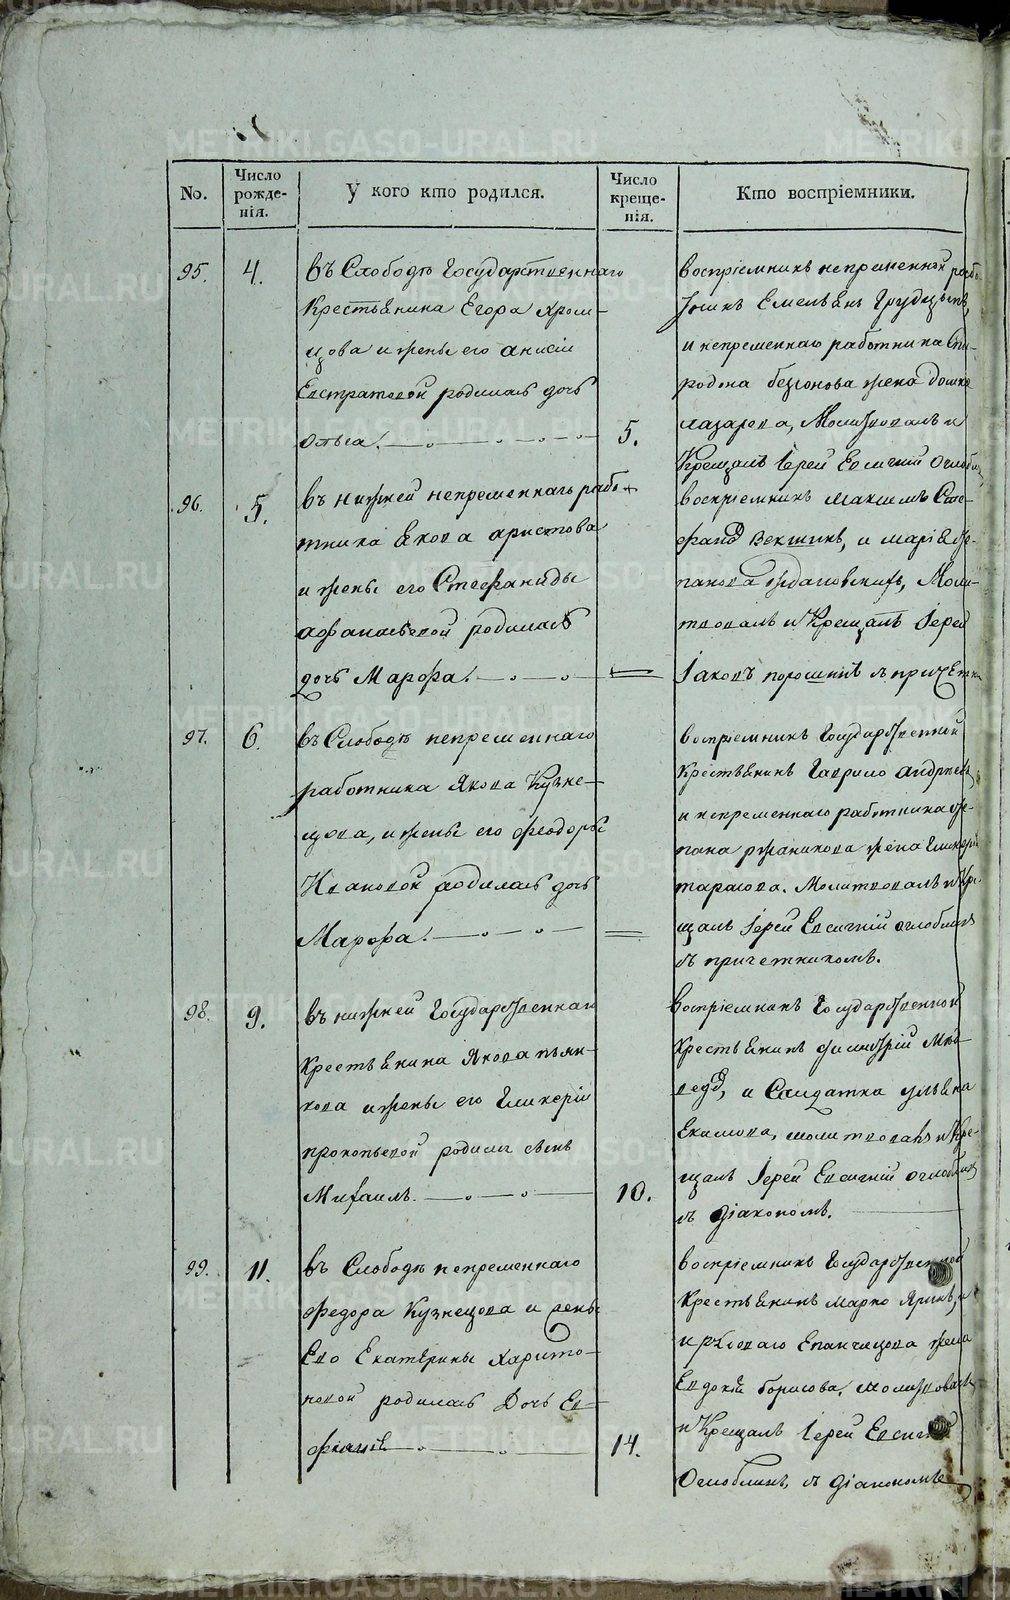 No.
Число рожде-нія.
У кого кто родился.
Число креще-нія.
Кто воспріемники.
95.
4.
въ Слободѣ Государственнаго
Крестьянина Егора Хром-
цова и жены его Анисіи
Евстратовой родилась дочь
Ольга.
5.
воспріемникъ непременной рабо-
тникъ Емельянъ
и непременнаго работника Спи-
ридона жена Домна
лазарева, Молитвовалъ и
Крещалъ Іерей Евсигній Оглоблинъ
96.
5.
въ нижней непременнаго рабо-
тника Якова аристова
и жены его Стефаниды
афанасьевой родилась
дочь Марфа.
воспріемникъ Максимъ Сте-
фановъ Векшинъ, и Марія Сте-
панова Моли-
твовалъ и Крещалъ Іерей
Іаковъ порошинъ съ причетни
97.
6.
въ Слободѣ непременнаго
работника Якова Кузне-
цова, и жены его Феодоры
Ивановой родилась дочь
Марфа.
воспріемникъ Государственной
Крестьянинъ Гаврило Андреевъ,
и непременнаго работника Сте-
пана жена Гликерія
тарасова. Молитвовалъ и Кре-
щалъ Іерей Евсигній Оглоблинъ
съ причетникомъ.
98.
9.
въ нижней Государственнаго
Крестьянина Якова пьян-
кова и жены его Гликеріи
прокопьевой родился сынъ
Михаилъ.
10.
воспріемникъ Государственной
Крестьянинъ Димитрій
и Салдатка ульяна
Екимова, молитвовалъ и Кре-
щалъ Іерей Евсигній Оглоблинъ
съ Діакономъ.
99.
11.
въ Слободѣ непременнаго
Федора Кузнецова и жены
Его Екатерины Харито-
новой родилась Дочь Ев-
фимія
14.
воспріемникъ Государственной
Крестьянинъ Марко Яринъ, и
жена
Евдокія борисова, Молитвовалъ
и Крещалъ Іерей Евсигній
Оглоблинъ, съ Діакономъ
METRIKI.GASO-URAL.RU